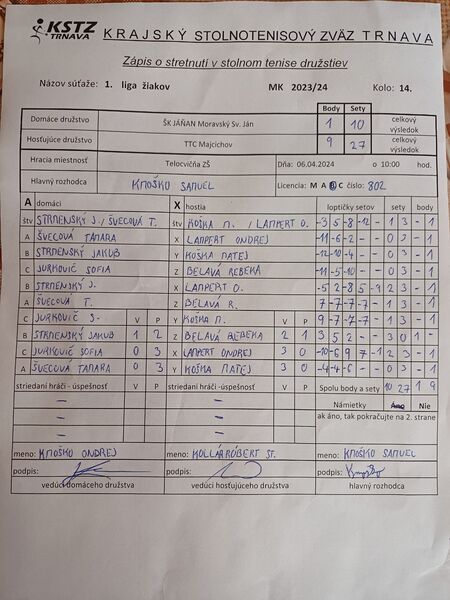 KSTZ
TRNAVA
KRAJSKÝ STOLNOTENISOVÝ ZVÄZ TRNAVA
Zápis o stretnutí v stolnom tenise družstiev
Názov súťaže: 1. liga žiakov MK 2023/24 Kolo: 14.
Body Sety
Domáce družstvo ŠK JÁŇAN Moravský Sv. Ján 1 10 celkový výsledok
Hosťujúce družstvo TTC Majcichov 9 27 celkový výsledok
Hracia miestnosť Telocvičňa ZŠ Dňa: 06.04.2024 o 10:00 hod.
Hlavný rozhodca KMOŠKO SAMUEL Licencia: M A B C číslo: 802
A domáci X hostia loptičky setov sety body
štv STRMENSKÝ J. / ŠVECOVÁ T. štv KOŠKA M. / LAMPERT O. -3 5 -8 -12 - 1 3 - 1
A ŠVECOVÁ TAMARA X LAMPERT ONDREJ -11 -6 -2 - - 0 3 - 1
B STRMENSKÝ JAKUB Y KOŠKA MATEJ -12 -10 -4 - - 0 3 - 1
C JURKOVIČ SOFIA Z BELAVÁ REBEKA -11 -5 -10 - - 0 3 - 1
B STRMENSKÝ J. X LAMPERT O. -5 2 8 5 -9 2 3 - 1
A ŠVECOVÁ T. Z BELAVÁ R. 7 -7 -7 -7 - 1 3 - 1
C JURKOVIČ S. V P Y KOŠKA M. V P 9 -7 -7 -7 - 1 3 - 1
B STRMENSKÝ JAKUB 1 2 Z BELAVÁ REBEKA 2 1 3 5 2 - - 3 0 1 -
C JURKOVIČ SOFIA 0 3 X LAMPERT ONDREJ 3 0 -10 -6 9 7 -1 2 3 - 1
A ŠVECOVÁ TAMARA 0 3 Y KOŠKA MATEJ 3 0 -4 -4 -6 - - 0 3 - 1
striedaní hráči - úspešnosť V P striedaní hráči - úspešnosť V P Spolu body a sety 10 27 1 9
— — Námietky Áno Nie
— — ak áno, tak pokračujte na 2. strane
— —
meno: KMOŠKO ONDREJ meno: KOLLÁR RÓBERT ST. meno: KMOŠKO SAMUEL
podpis: podpis: podpis:
vedúci domáceho družstva vedúci hosťujúceho družstva hlavný rozhodca